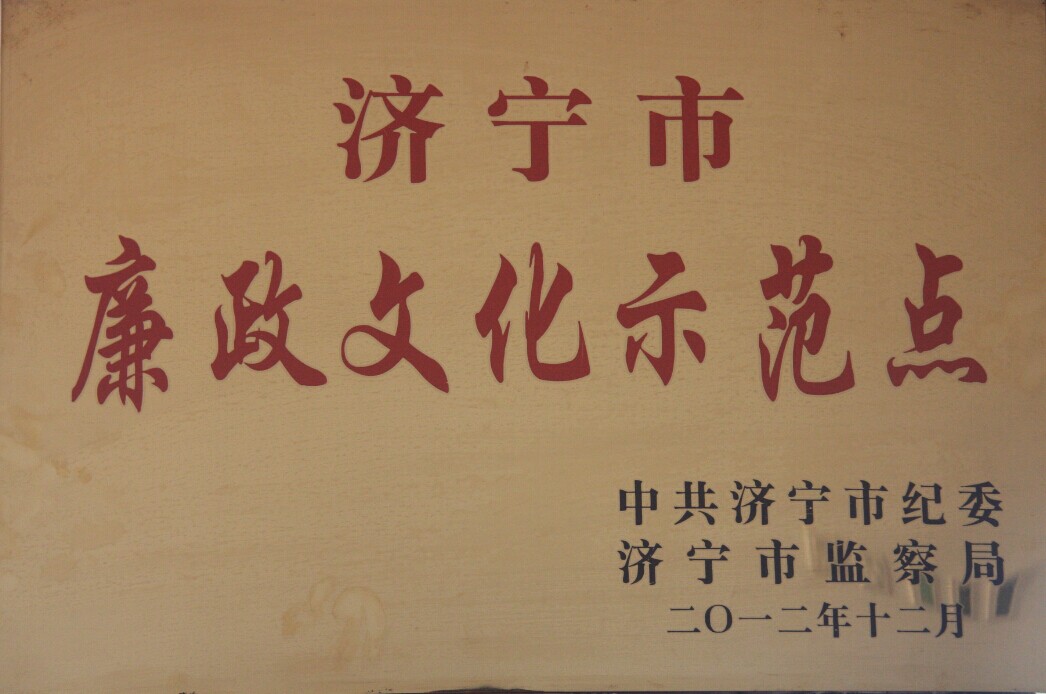 济宁市
廉政文化示范点
中共济宁市纪委
济宁市监察局
二〇一二年十二月